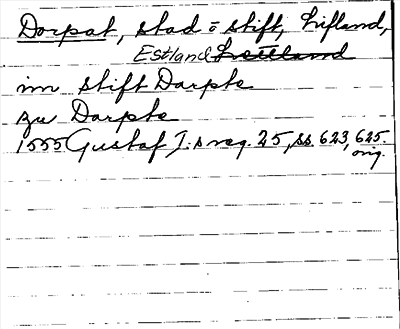 Dorpat, stad o stift, Lifland,
Estland Lettland
im stift Darpte
zu Darpte
1555 Gustaf I:s reg. 25, ss. 623, 625.
orig.